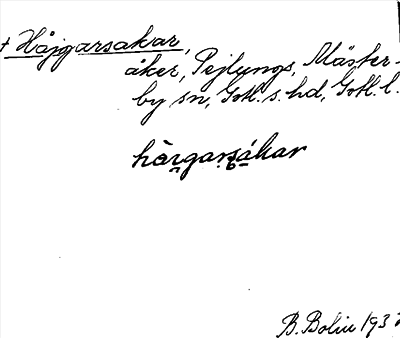 + Häjgarsakar,
åker, Pejlungs, Mäster-
by sn, Gotl. s. hd, Gotl. l.
hàrgarsákar
B. Bolin 193